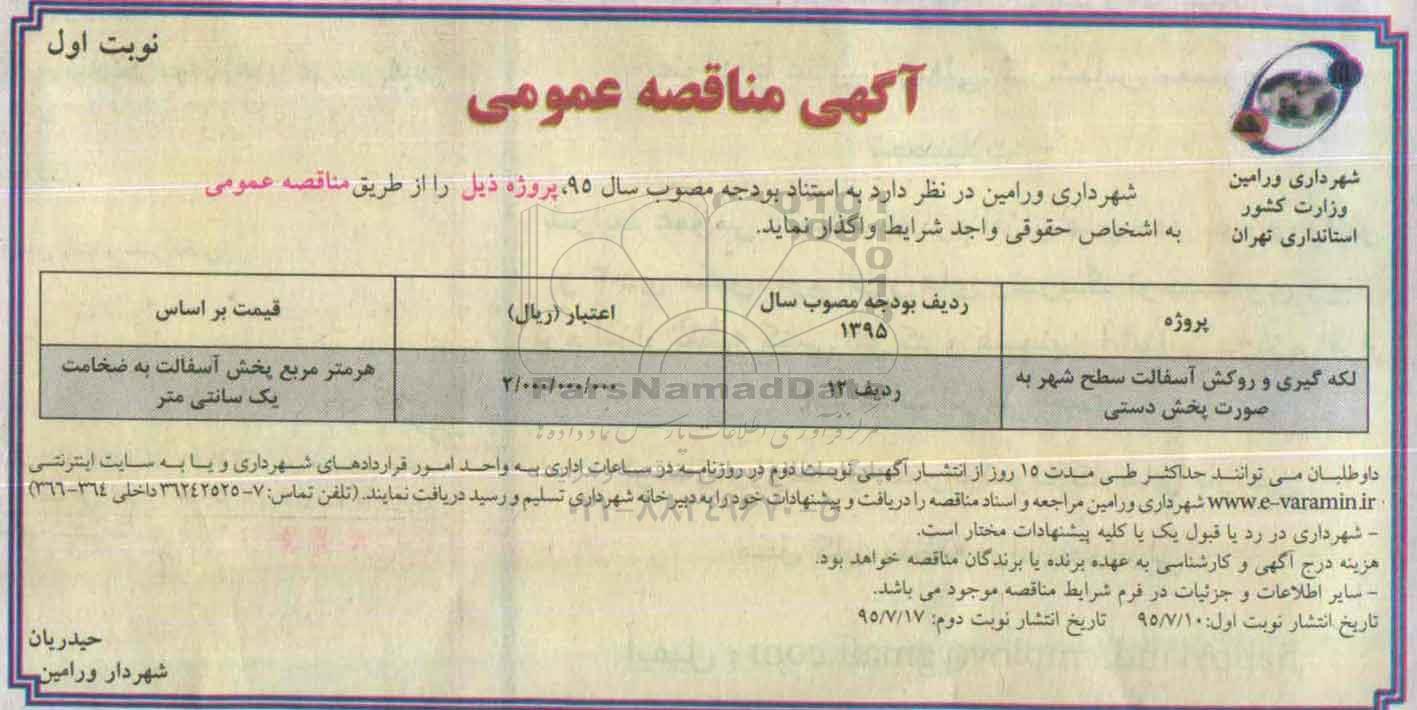 نوبت اول
آگهی مناقصه عمومی
شهرداری ورامین
وزارت کشور
استانداری تهران
شهرداری ورامین در نظر دارد به استناد بودجه مصوب سال ۹۵، پروژه ذیل را از طریق مناقصه عمومی
به اشخاص حقوقی واجد شرایط واگذار نماید.
پروژه
ردیف بودجه مصوب سال
۱۳۹۵
اعتبار (ریال)
قیمت بر اساس
لکه گیری و روکش آسفالت سطح شهر به
صورت پخش دستی
ردیف ۱۲
۲/۰۰۰/۰۰۰/۰۰۰
هرمتر مربع پخش آسفالت به ضخامت
یک سانتی متر
ParsNamadData
مرکز فرآوری اطلاعات پارس نماد داده ها
داوطلبان می توانند حداکثر طی مدت ۱۵ روز از انتشار آگهی نوبت دوم در روزنامه در ساعات اداری به واحد امور قراردادهای شهرداری و یا به سایت اینترنتی
www.e-varamin.ir شهرداری ورامین مراجعه و اسناد مناقصه را دریافت و پیشنهادات خود را به دبیرخانه شهرداری تسلیم و رسید دریافت نمایند. (تلفن تماس: ۷-۳۶۲۴۲۵۲۵ داخلی ۳۶۴-۳۶۶)
۰۲۱-۸۸۳۴۹۶۷۰-۵
- شهرداری در رد یا قبول یک یا کلیه پیشنهادات مختار است.
هزینه درج آگهی و کارشناسی به عهده برنده یا برندگان مناقصه خواهد بود.
- سایر اطلاعات و جزئیات در فرم شرایط مناقصه موجود می باشد.
تاریخ انتشار نوبت اول: ۹۵/۷/۱۰ تاریخ انتشار نوبت دوم: ۹۵/۷/۱۷
حیدریان
شهردار ورامین